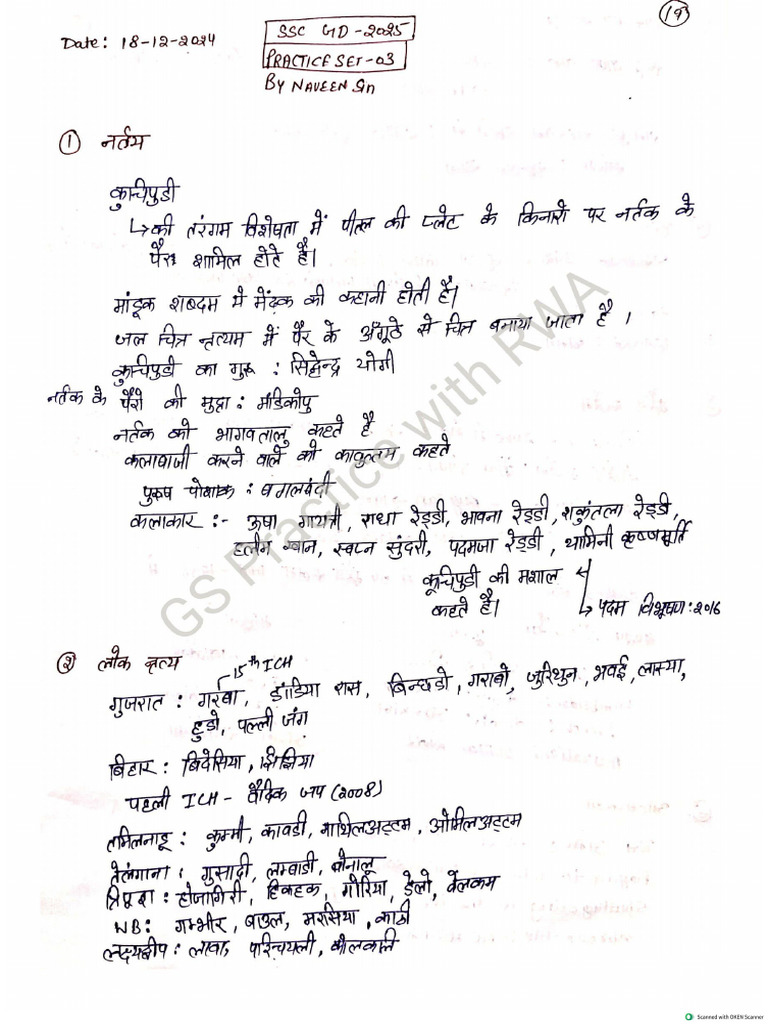 19
Date: 18-12-2024
SSC GD-2025
PRACTICE SET-03
BY NAVEEN Sir
① नर्तय
कुचिपुडी
↳ की तरंगम विशेषता में पीतल की प्लेट के किनारो पर नर्तक के
पैर शामिल होते है।
मांडूक शबदम में मेंढक की कहानी होती है।
जल चित्र नृत्यम में पैर के अँगूठे से चित्र बनाया जाता है ।
कुचिपुडी का गुरू : सिद्धेन्द्र योगी
नर्तक के पैरो की मुद्रा : मंडिकोपु
नर्तक को भागवतालु कहते है
कलाबाजी करने वाले को कावुत्तम कहते
पुरुष पोशाक : बगलबंदी
कलाकार :- ऊषा गायत्री, राधा रेड्डी, भावना रेड्डी, शकुंतला रेड्डी,
हलीम खान, स्वप्न सुंदरी, पदमजा रेड्डी, यामिनी कृष्णमूर्ति
कूचिपुडी की मशाल
कहते है।
↳ पदम विभूषण: 2016
② लोक नृत्य
15th ICH
गुजरात : गरबा, डांडिया रास, बिन्छडो, गराबो, जुरिथुन, भवई, लास्या,
हुडो, पल्ली जंग
बिहार: बिदेसिया, झिझिया
पहली ICH - वैदिक जप (2008)
तमिलनाडू : कुम्मी, कावडी, माथिलअट्टम, ओमिलअट्टम
तेलंगाना : गुसादी, लम्बाडी, बोनालू
त्रिपुरा : होजागिरी, हिकहक, गोरिया, डेलो, वेलकम
WB: गम्भीर, बाउल, मरासिया, काठी
लक्ष्यद्वीप : लावा, परिचयली, कोलकाली
GS Practice with RWA
Scanned with OKEN Scanner